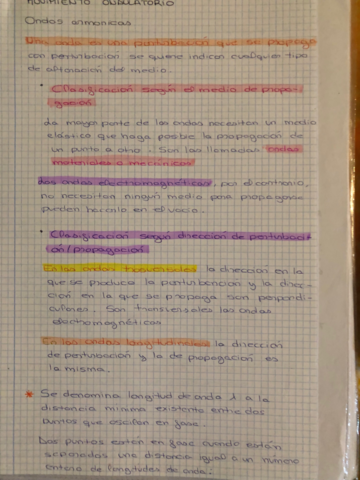 MOVIMIENTO ONDULATORIO
Ondas armonicas
Una onda es una perturbación que se propaga
con perturbación se quiere indicar cualquier tipo
de alteración del medio.
• Clasificación según el medio de propa-
gación
La mayor parte de las ondas necesitan un medio
elástico que haga posible la propagación de
un punto a otro. Son las llamadas ondas
materiales o mecánicas
Las ondas electromagnéticas, por el contrario,
no necesitan ningún medio para propagarse
pueden hacerlo en el vacío.
• Clasificación según dirección de perturbaci-
ón/propagación
En las ondas transversales la dirección en la
que se produce la perturbación y la direc-
ción en la que se propaga son perpendi-
culares. Son transversales las ondas
electromagnéticas
En las ondas longitudinales la dirección
de perturbación y la de propagación es
la misma.
* Se denomina longitud de onda λ a la
distancia mínima existente entre dos
puntos que oscilan en fase.
Dos puntos están en fase cuando están
separados una distancia igual a un número
entero de longitudes de onda.